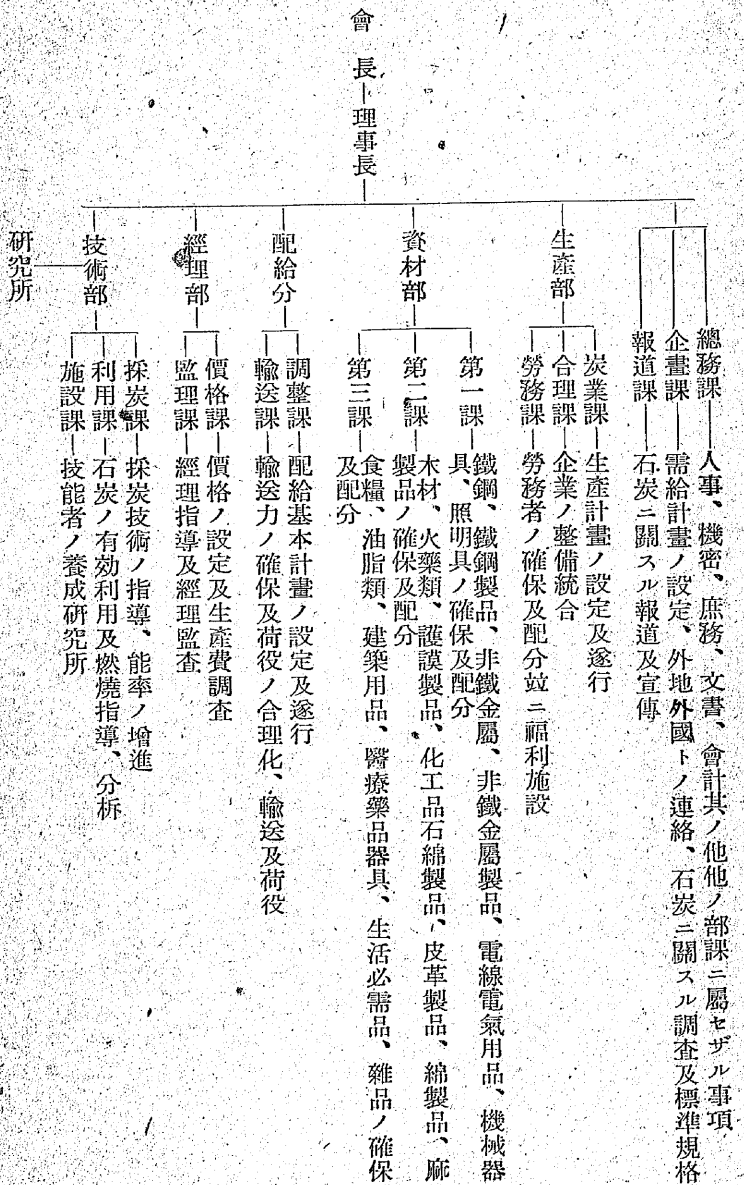 會長
理事長
總務課
人事、機密、庶務、文書、會計其ノ他他ノ部課ニ屬セザル事項
企畫課
需給計畫ノ設定、外地外國トノ連絡、石炭ニ關スル調査及標準規格
報道課
石炭ニ關スル報道及宣傳
生產部
炭業課
生產計畫ノ設定及遂行
合理課
企業ノ整備統合
勞務課
勞務者ノ確保及配分竝ニ福利施設
資材部
第一課
鐵鋼、鐵鋼製品、非鐵金屬、非鐵金屬製品、電線電氣用品、機械器
具、照明具ノ確保及配分
第二課
木材、火藥類、護謨製品、化工品石綿製品、皮革製品、綿製品、麻
製品ノ確保及配分
第三課
食糧、油脂類、建築用品、醫療藥品器具、生活必需品、雜品ノ確保
及配分
配給分
調整課
配給基本計畫ノ設定及遂行
輸送課
輸送力ノ確保及荷役ノ合理化、輸送及荷役
經理部
價格課
價格ノ設定及生產費調査
監理課
經理指導及經理監査
技術部
採炭課
採炭技術ノ指導、能率ノ增進
利用課
石炭ノ有効利用及燃燒指導、分析
施設課
技能者ノ養成研究所
研究所